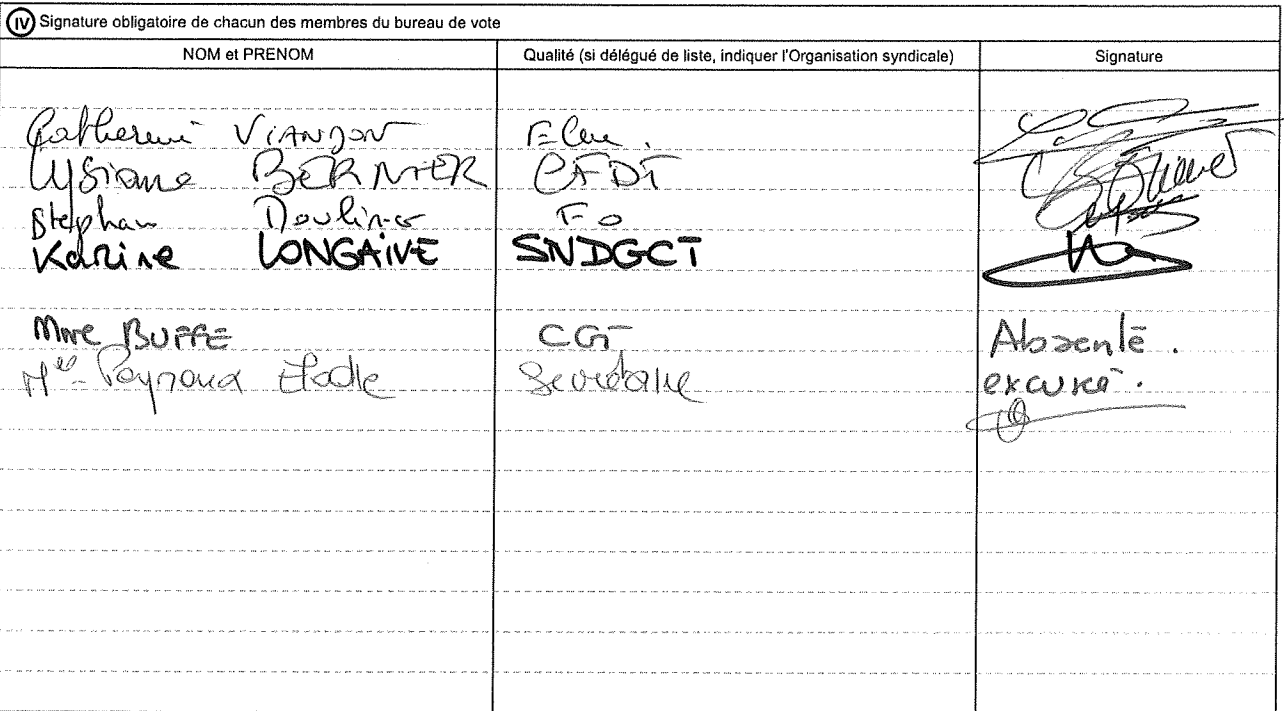 IV Signature obligatoire de chacun des membres du bureau de vote
NOM et PRENOM Qualité (si délégué de liste, indiquer l'Organisation syndicale) Signature
Catherine VIANDON Elue.
Lysiane BERNIER CFDT
Stephan FO
Karine LONGAIVE SNDGCT
Mme BUFFE CGT Absente.
Mlle Peynoux Elodie Secrétaire excusée.